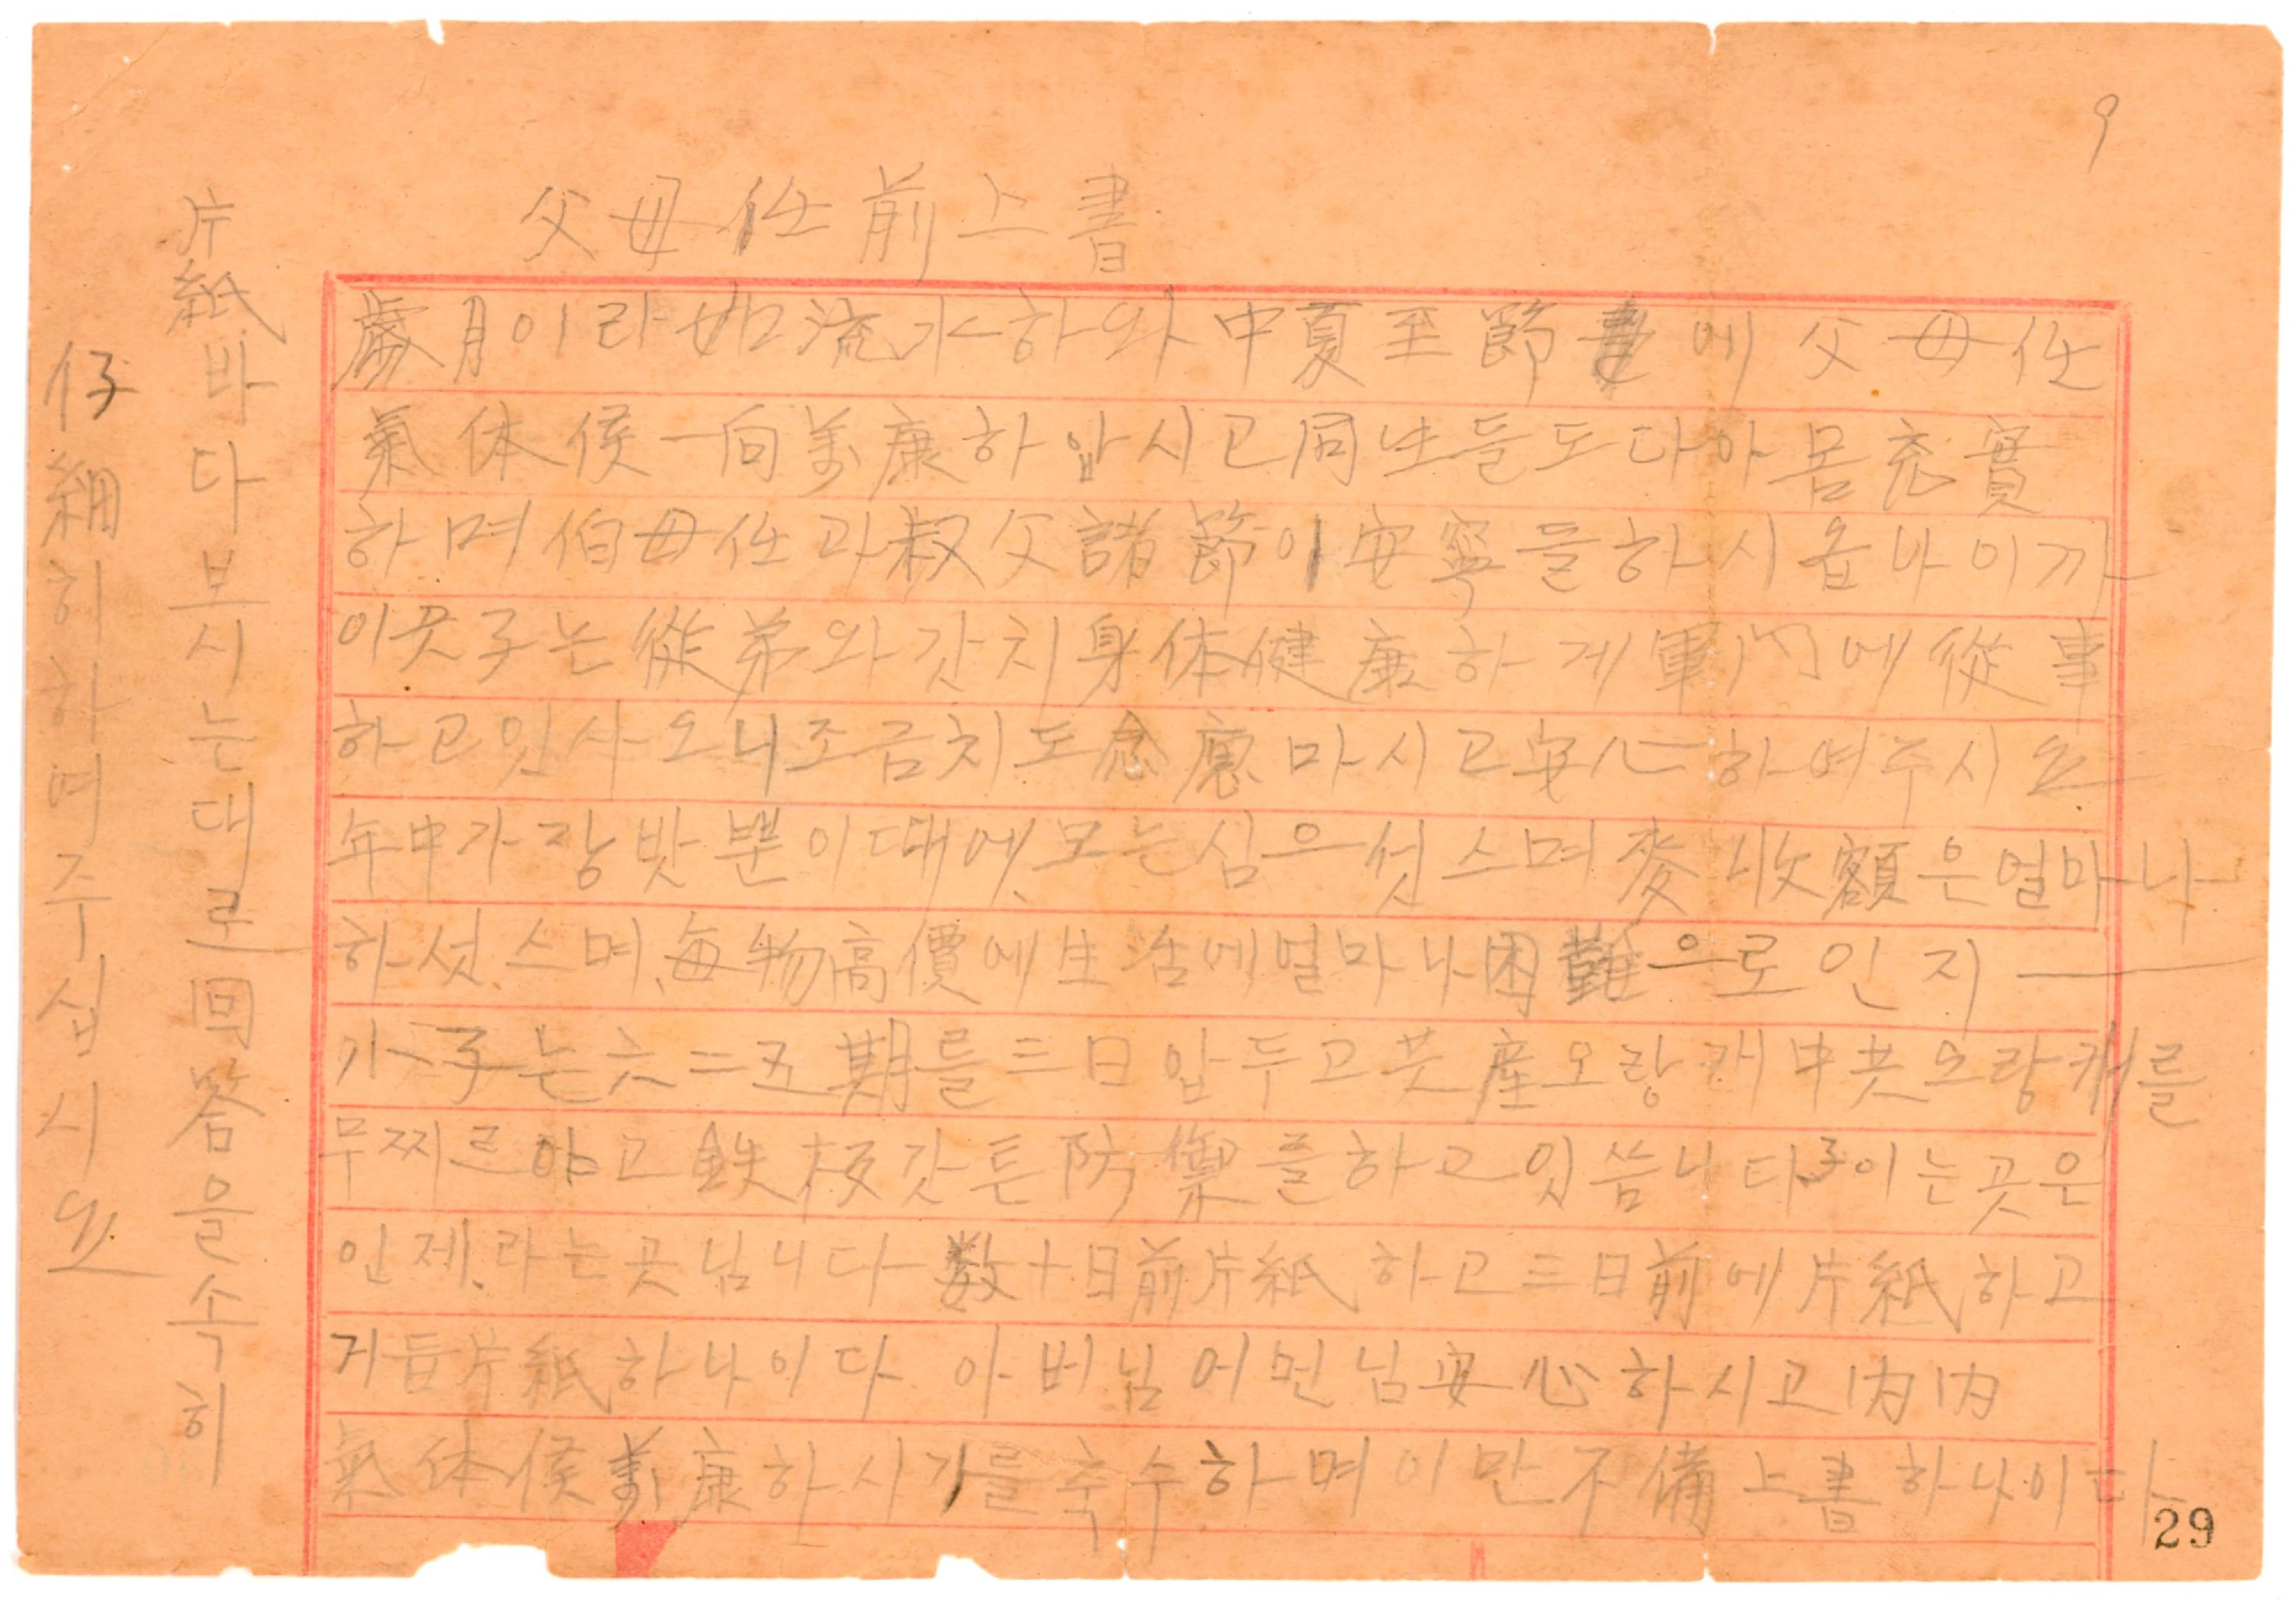 9
父母任前上書
歲月이라如流水하와中夏至節에父母任
氣体侯一向萬康하압시고同生들도다아몸充實
하며伯母任과叔父諸節이安寧들하시옵나이까
이곳子는從弟와갓치身体健康하게軍門에從事
하고잇사오니조금치도念慮마시고安心하여주시요
年中가장밧뿐이때에모는심으섯스며麥收額은얼마나
하섯스며每物高價에生活에얼마나困難으로인지
가子는六二五期를三日압두고共産오랑캐中共오랑캐를
무찌르야고鉄板갓튼防禦를하고잇씀니다子이는곳은
인제라는곳님니다 数十日前片紙하고三日前에片紙하고
거듭片紙하나이다 아버님어먼님安心하시고內內
氣体侯萬康하시기를축수하며이만不備上書하나이다
片紙바다보시는대로回答을속히
仔細히하여주십시요
29